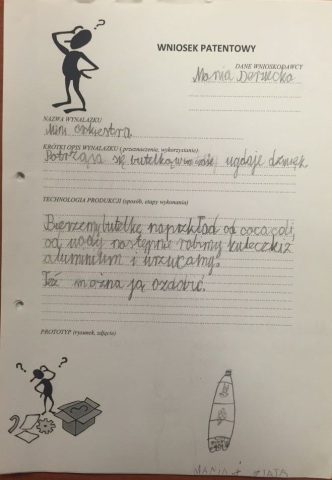 WNIOSEK PATENTOWY
DANE WNIOSKODAWCY
Mania
NAZWA WYNALAZKU
Mini orkiestra
KRÓTKI OPIS WYNALAZKU ( przeznaczenie, wykorzystanie)
Potrząsa się butelką wydaje dźwięk
TECHNOLOGIA PRODUKCJI (sposób, etapy wykonania)
Bierzemy butelkę naprzekład od coca coli,
od wody następnie robimy kuleczki z
aluminium i wrzucamy.
Też można ją ozdobić.
PROTOTYP (rysunek, zdjęcie)
MANIA i